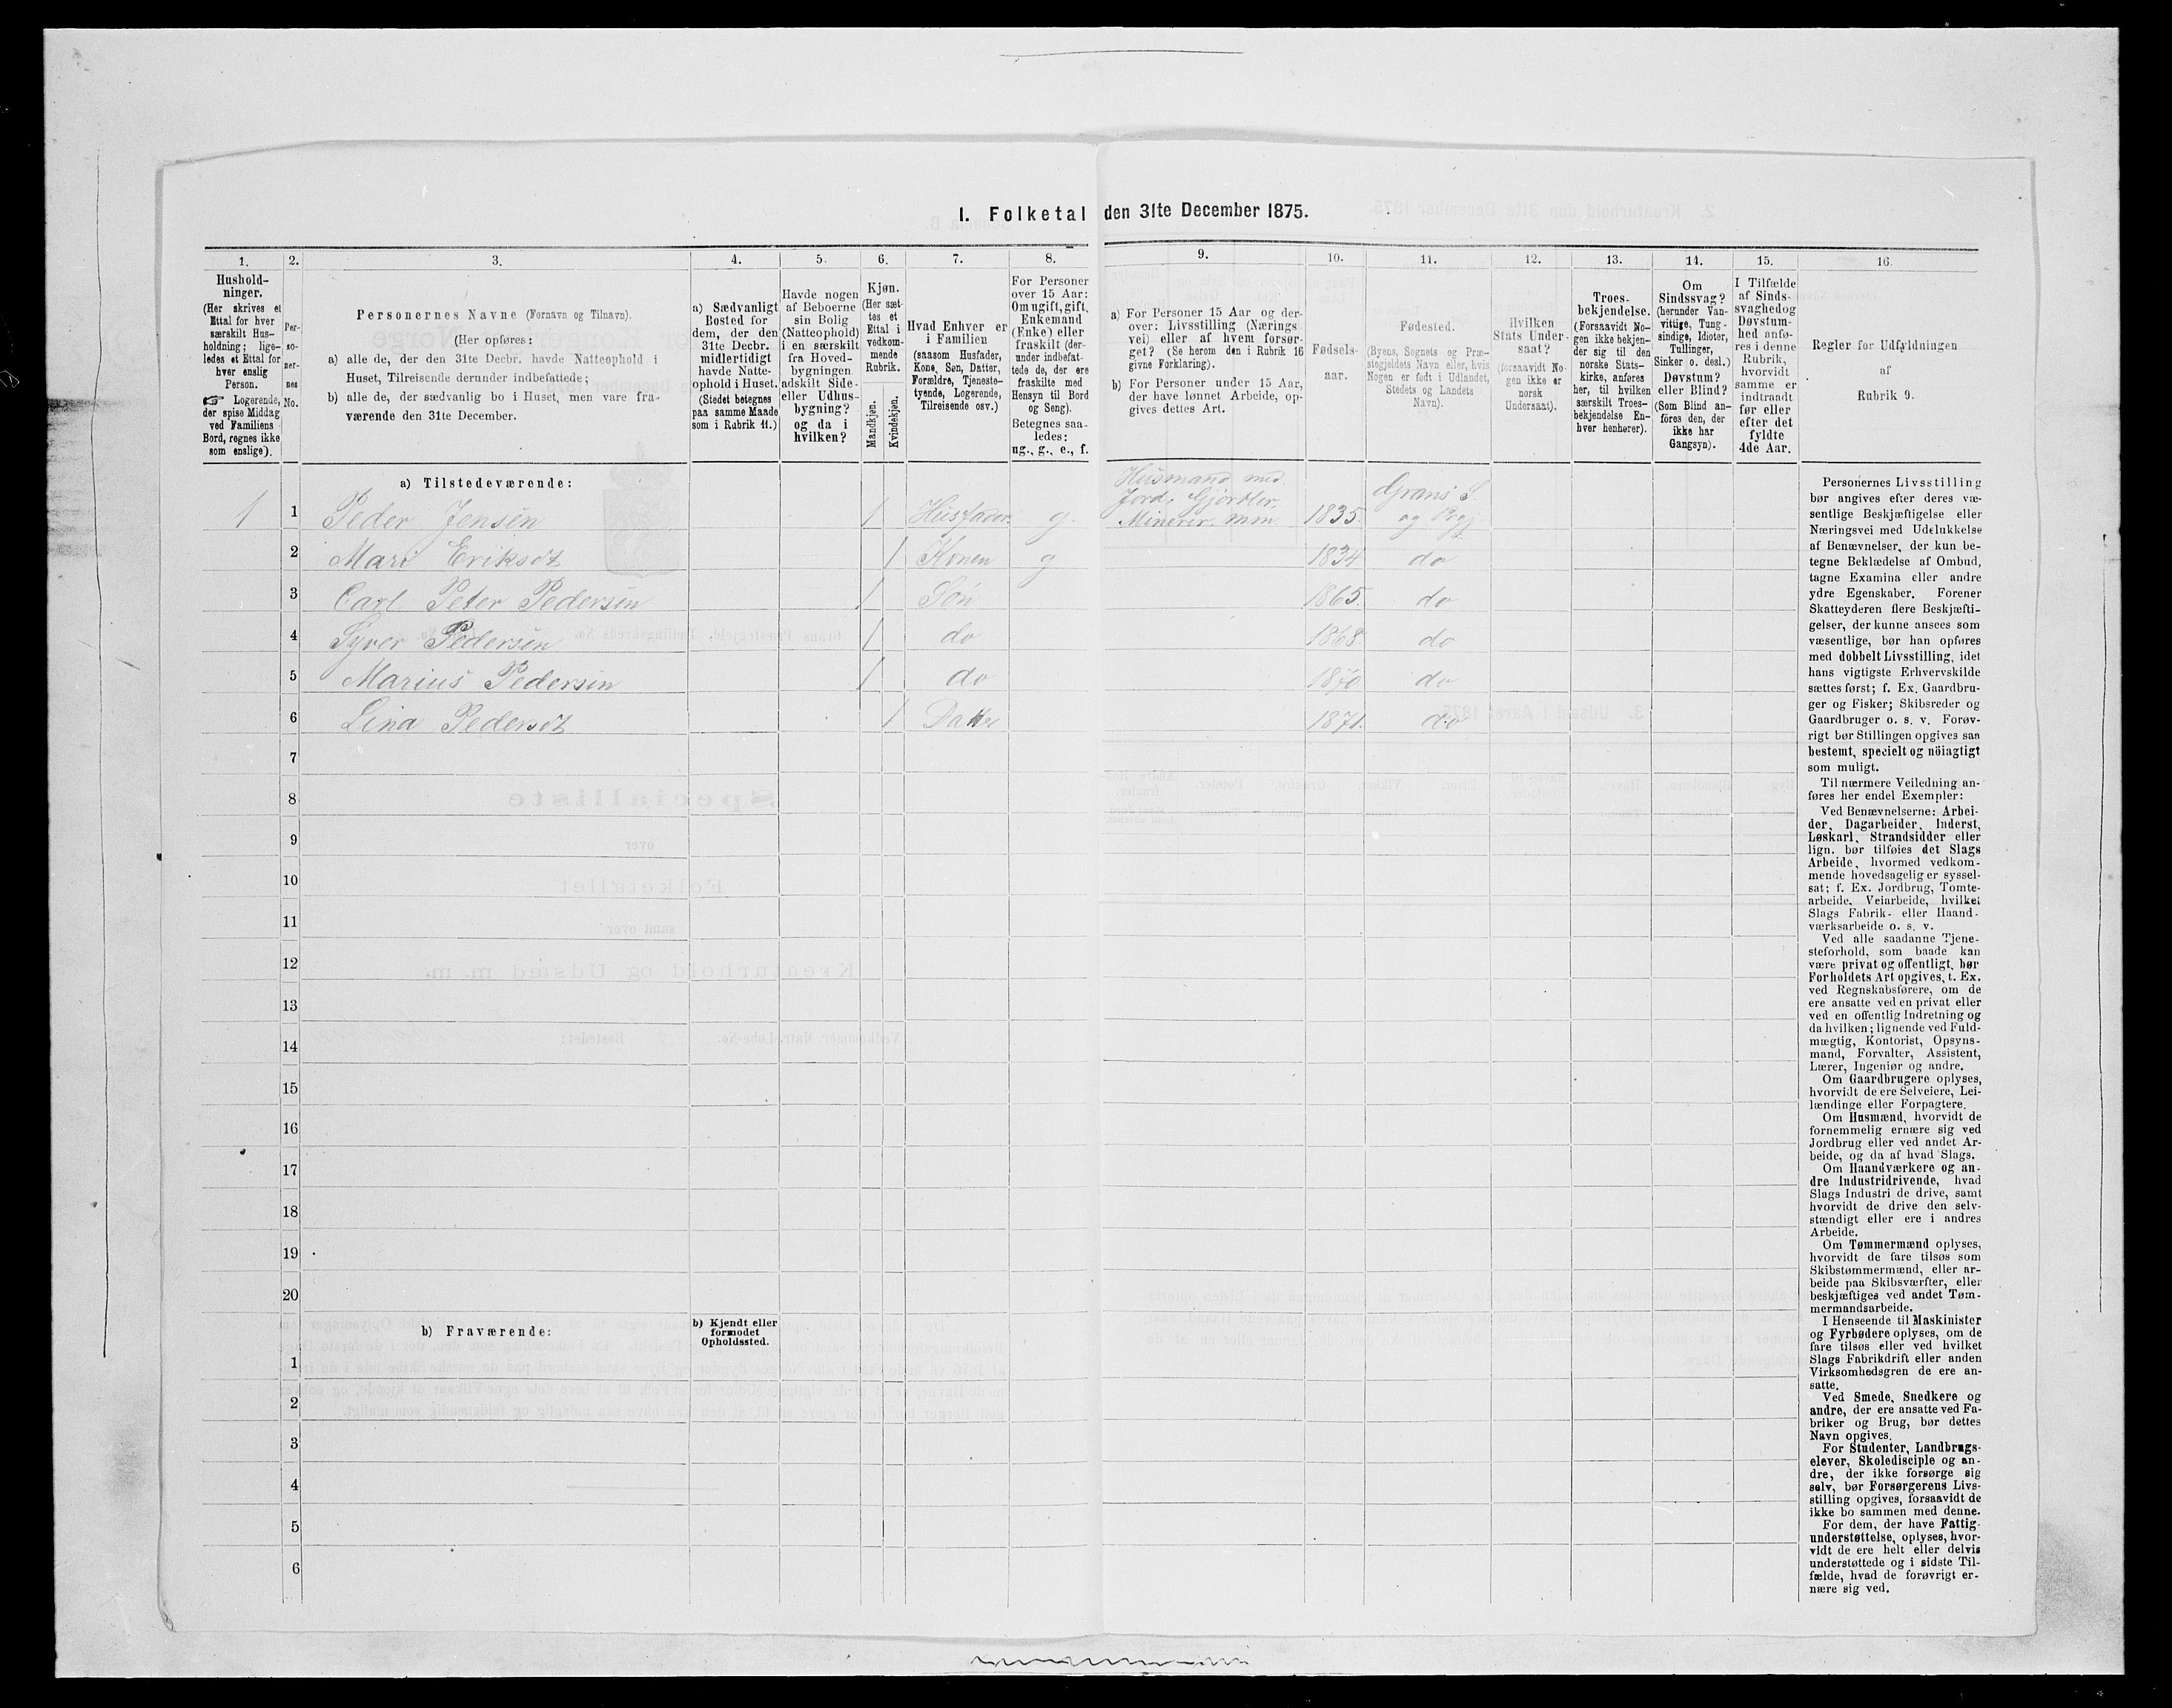 I. Folketal den 31te December 1875.
1. 2. 3. 4. 5. 6. 7. 8. 9. 10. 11. 12. 13. 14. 15. 16.
Hushold-
ninger.
(Her skrives et
Ettal for hver
særskilt Hus-
holdning; lige-
ledes et Ettal for
hver enslig
Person.
☞ Logerende,
der spise Middag
ved Familiens
Bord, regnes ikke
som enslige).
Per-
so-
ner-
nes
No.
Personernes Navne (Fornavn og Tilnavn).
(Her opføres:
a) alle de, der den 31te Decbr. havde Natteophold i
Huset, Tilreisende derunder indbefattede;
b) alle de, der sædvanlig bo i Huset, men vare fra-
værende den 31te December.
a) Sædvanligt
Bosted for
dem, der den
31te Decbr.
midlertidigt
havde Natte-
ophold i Huset.
(Stedet betegnes
paa samme Maade
som i Rubrik 11.)
Havde nogen
af Beboerne
sin Bolig
(Natteophold)
i en særskilt
fra Hoved-
bygningen
adskilt Side-
eller Udhus-
bygning?
og da i
hvilken?
Kjøn.
(Her sæt-
tes et
Ettal i
vedkom-
mende
Rubrik.
Mandkjøn.
Kvindekjøn.
Hvad Enhver er
i Familien
(saasom Husfader,
Kone, Søn, Datter,
Forældre, Tjeneste-
tyende, Logerende,
Tilreisende osv.)
For Personer
over 15 Aar:
Om ugift, gift,
Enkemand
(Enke) eller
fraskilt (der-
under indbefat-
tede de, der ere
fraskilte med
Hensyn til Bord
og Seng).
Betegnes saa-
ledes:
ug., g., e., f.
a) For Personer 15 Aar og der-
over: Livsstilling (Nærings-
vei) eller af hvem forsør-
get? (Se herom den i Rubrik 16
givne Forklaring).
b) For Personer under 15 Aar,
der have lønnet Arbeide, op-
gives dettes Art.
Fødsels-
aar.
Fødested.
(Byens, Sognets og Præ-
stegjeldets Navn eller, hvis
Nogen er født i Udlandet,
Stedets og Landets
Navn).
Hvilken
Stats Under-
saat?
(forsaavidt No-
gen ikke er
norsk
Undersaat).
Troes-
bekjendelse.
(Forsaavidt No-
gen ikke bekjen-
der sig til den
norske Stats-
kirke, anføres
her, til hvilken
særskilt Troes-
bekjendelse En-
hver henhører).
Om
Sindssvag?
(herunder Van-
vittige, Tung-
sindige, Idioter,
Tullinger,
Sinker o. desl.)
Døvstum?
eller Blind?
(Som Blind an-
føres den, der
ikke har
Gangsyn).
I Tilfælde
af Sinds-
svaghed og
Døvstum-
hed anfø-
res i denne
Rubrik,
hvorvidt
samme er
indtraadt
før eller
efter det
fyldte
4de Aar.
Regler for Udfyldningen
af
Rubrik 9.
a) Tilstedeværende:
Husmand med
Jord, Gjørtler,
Minerer mm
1 1 Peder Jensen 1 Husfader. g. 1835. Grans S. og Prgj
2 Mari Eriksdt 1 Konen g 1834 do
3 Carl Peter Pedersen 1 Søn 1865. do
4 Syver Pedersen 1 do 1868 do
5 Marius Pedersen 1 do 1870 do
6 Lina Pedersdt 1 Datter 1871. do
7
8
9
10
11
12
13
14
15
16
17
18
19
20
b) Fraværende:
b) Kjendt eller
formodet
Opholdssted.
1
2
3
4
5
6
Personernes Livsstilling
bør angives efter deres væ-
sentlige Beskjæftigelse eller
Næringsvei med Udelukkelse
af Benævnelser, der kun be-
tegne Beklædelse af Ombud,
tagne Examina eller andre
ydre Egenskaber. Forener
Skatteyderen flere Beskjæfti-
gelser, der kunne ansees som
væsentlige, bør han opføres
med dobbelt Livsstilling, idet
hans vigtigste Erhvervskilde
sættes først; f. Ex. Gaardbru-
ger og Fisker; Skibsreder og
Gaardbruger o. s. v. Forøv-
rigt bør Stillingen opgives saa
bestemt, specielt og nöiagtigt
som muligt.
Til nærmere Veiledning an-
føres her endel Exempler:
Ved Benævnelserne: Arbei-
der, Dagarbeider, Inderst,
Løskarl, Strandsidder eller
lign. bør tilføies det Slags
Arbeide, hvormed vedkom-
mende hovedsagelig er syssel-
sat; f. Ex. Jordbrug, Tomte-
arbeide, Veiarbeide, hvilket
Slags Fabrik- eller Haand-
værksarbeide o. s. v.
Ved alle saadanne Tjene-
steforhold, som baade kan
være privat og offentligt, bør
Forholdets Art opgives, t. Ex.
ved Regnskabsførere, om de
ere ansatte ved en privat eller
ved en offentlig Indretning og
da hvilken; lignende ved Fuld-
mægtig, Kontorist, Opsyns-
mand, Forvalter, Assistent,
Lærer, Ingeniør og andre.
Om Gaardbrugere oplyses,
hvorvidt de ere Selveiere, Lei-
lændinge eller Forpagtere.
Om Husmænd, hvorvidt de
fornemmelig ernære sig ved
Jordbrug eller ved andet Ar-
beide, og da af hvad Slags.
Om Haandværkere og an-
dre Industridrivende, hvad
Slags Industri de drive, samt
hvorvidt de drive den selv-
stændigt eller ere i andres
Arbeide.
Om Tømmermænd oplyses,
hvorvidt de fare tilsøs som
Skibstømmermænd, eller ar-
beide paa Skibsværfter, eller
beskjæftiges ved andet Tøm-
mermandsarbeide.
I Henseende til Maskinister
og Fyrbødere oplyses, om de
fare tilsøs eller ved hvilket
Slags Fabrikdrift eller anden
Virksomhedsgren de ere an-
satte.
Ved Smede, Snedkere og
andre, der ere ansatte ved Fa-
briker og Brug, bør dettes
Navn opgives.
For Studenter, Landbrugs-
elever, Skoledisciple og an-
dre, der ikke forsørge sig
selv, bør Forsørgerens Livs-
stilling opgives, forsaavidt de
ikke bo sammen med denne.
For dem, der have Fattig-
understøttelse, oplyses, hvor-
vidt de ere helt eller delvis
understøttede og i sidste Til-
fælde, hvad de forøvrigt er-
nære sig ved.